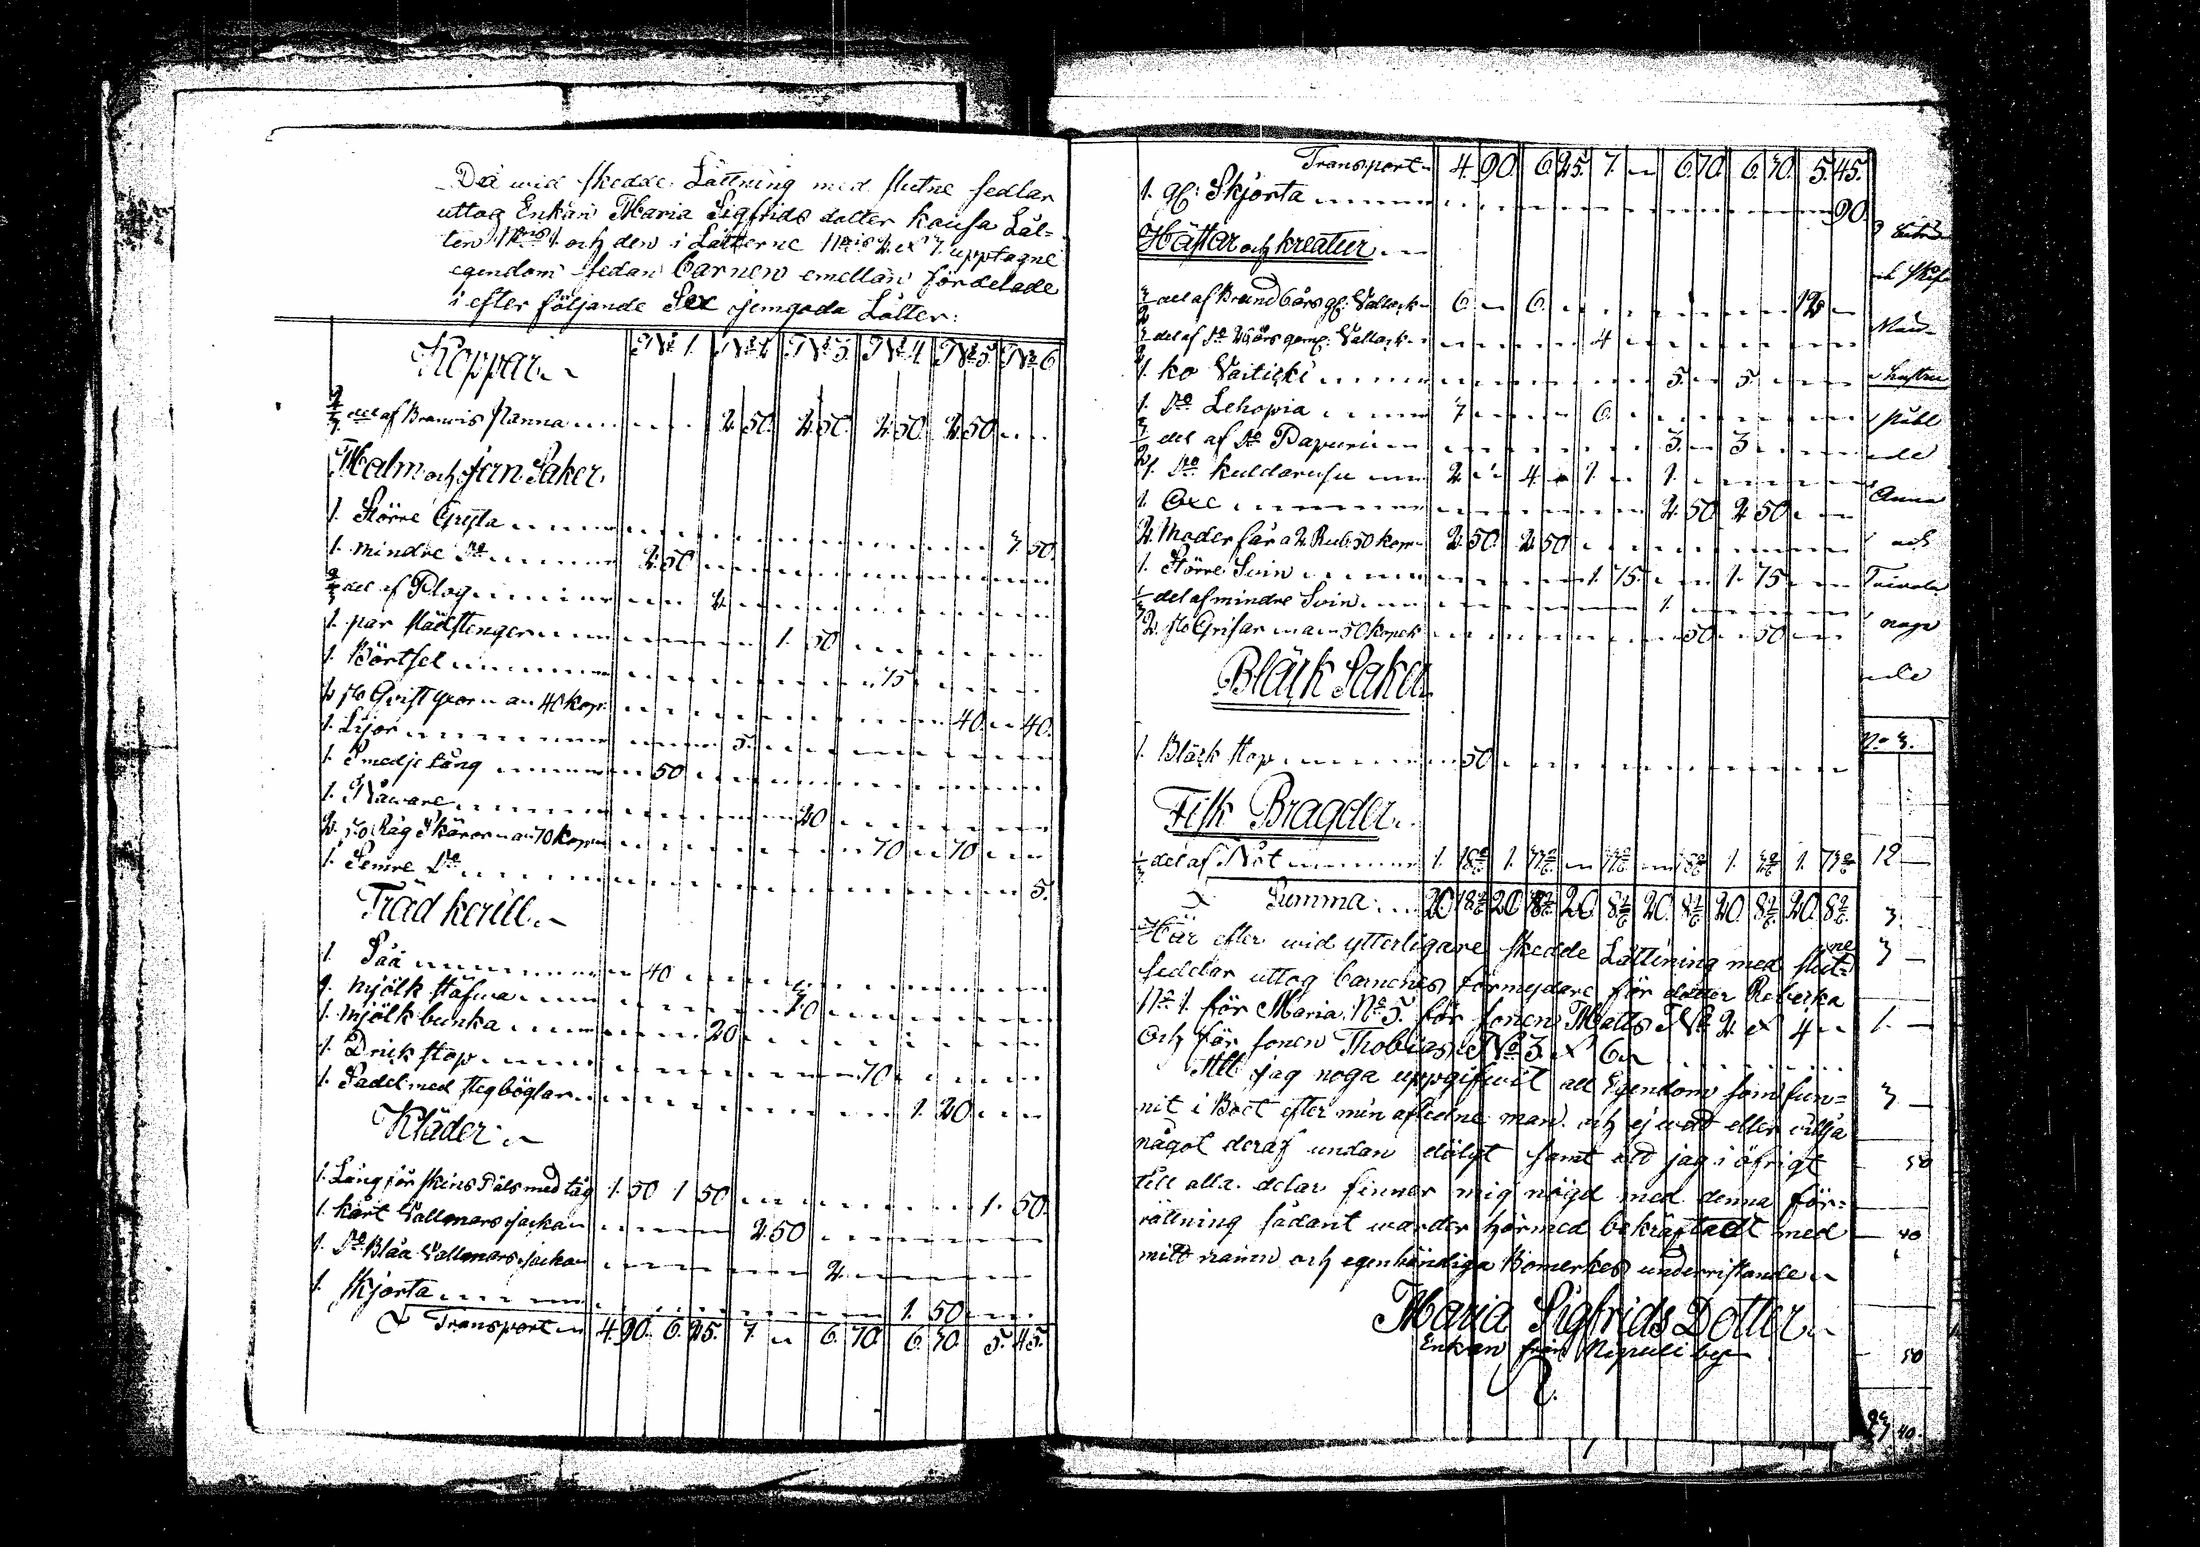 Då wid skedde Låttning med slutne sedlar
uttog Enkan Maria Sigfrids dotter
ten och den i Låtterne upptagne
egendom sedan barnen emellan fördelade
i efter följande Sex jemgoda Låtter:
Koppar N:o 1. N:o 2 N:o 3. N:o 4 N:o 5. N:o 6
del af Brännvins Panna 2 50. 2 50. 2 50. 2 50
Malm och Jern Saker
1. Större Gryta 3. 50.
1. mindre D:o 2 50
2/3 del af Plog 2
1. par 1. 50
1. Börtsel 75
2. st: a 40 kop: 40. 40.
1. Lijor 5.
1. Smedje tång 50
1. Nafvare 20
2. st: Råg Skäror a 70 kop: 70 70
1. Semre D:o 5.
Träd käril
1. Såå 40
1. Mjölk 70
1. Mjölk bunka 20
1. Drick stop 70
1. Sadel med stegböglar 1. 20
Kläder
1. Lång får skins Päls med tåg 1. 50 1 50 1. 50.
1. kårt Vallmars jacka 2. 50
1. D:o Blåa Vallmars jacka 2
1. Skjorta 1. 50
Transport 4. 90. 6. 25. 7. 6. 70. 6. 70. 5. 45.
Transport 4. 90. 6. 25. 7. 6. 70. 6. 70. 5. 45.
1. gl: Skjorta 90.
Hästar och kreatur
del af Brund 6 års gl: Vallack 6 6. 12
del af D:o gaml: Vallack 4
1. ko 5. 5.
1. D:o Lehopia 7 6.
del af D:o Papuri 3. 3
1. D:o 2 4 1. 1.
1. Oxe 2. 50 2 50
2. Moder får a 2 Rub: 50 kop: 2 50. 2 50
1. Större Svin 1. 75. 1. 75
1/2 del af mindre Svin 1.
2. st: Grisar a 50 kopek 50 50
Bläck Saker
1. Bläck stop 50
Fisk Bragder
del af Not 1. 1. 1 1.
Summa 20 20 20 20. 20 20.
Här efter wid ytterligare skedde Låttning med slutne
seddlar uttog barnens förmydare för dotter Reberka
N:o 1. för Maria N:o 5. för sonen Matts N:o 2 & 4
Och för sonen Thobias N:o 3 & 6
Att jag noga uppgifwit all Egendom som fun-
nit i Boet efter min aflidne man och ej wet eller willja
något deraf undan dölgt samt att jag i öfrigt
till alla delar finner mig nögd med denna för-
rättning sådant warder härmed bekräftadt med
mitt namn och egenhändiga Bomerkes underristande
Maria Sigfrids Dotter
Enkan från by
Anna
och
12
3.
3
1.
3
50
40
50